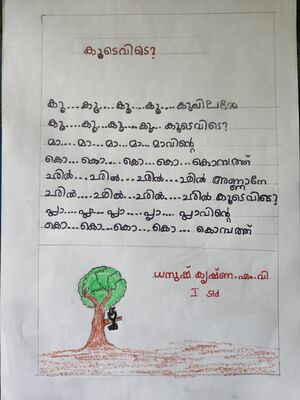 കൂടെവിടെ?
കൂ.... കൂ.... കൂ.... കൂ.... കുയിലമ്മേ
കൂ.... കൂ....കൂ....കൂ.... കൂടെവിടെ?
മാ.... മാ.... മാ....മാ.... മാവിന്റെ
കൊ.... കൊ.... കൊ.... കൊ.... കൊമ്പത്ത്
ഛിൽ....ഛിൽ....ഛിൽ....ഛിൽ അണ്ണാനേ
ഛിൽ....ഛിൽ....ഛിൽ....ഛിൽ കൂടെവിടെ?
പ്ലാ.... പ്ലാ.... പ്ലാ.... പ്ലാ.... പ്ലാവിന്റെ
കൊ.... കൊ.... കൊ.... കൊ.... കൊമ്പത്ത്
ധനുഷ് കൃഷ്ണ.എം.വി
I Std